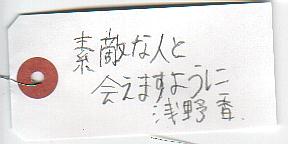 素敵な人と
会えますように
浅野香